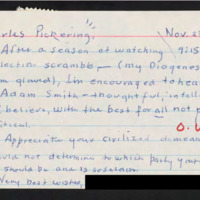 rles Pickering, Nov. 2
After a season of watching
lection scramble — (my Diogenes
m glued), I'm encouraged to hea
Adam Smith — thoughtful, intell
believe, with the best for all not p
tical. O.
Appreciate your civilized demean
uld not determine to which party you
should be and is seldom
Very best wishes,